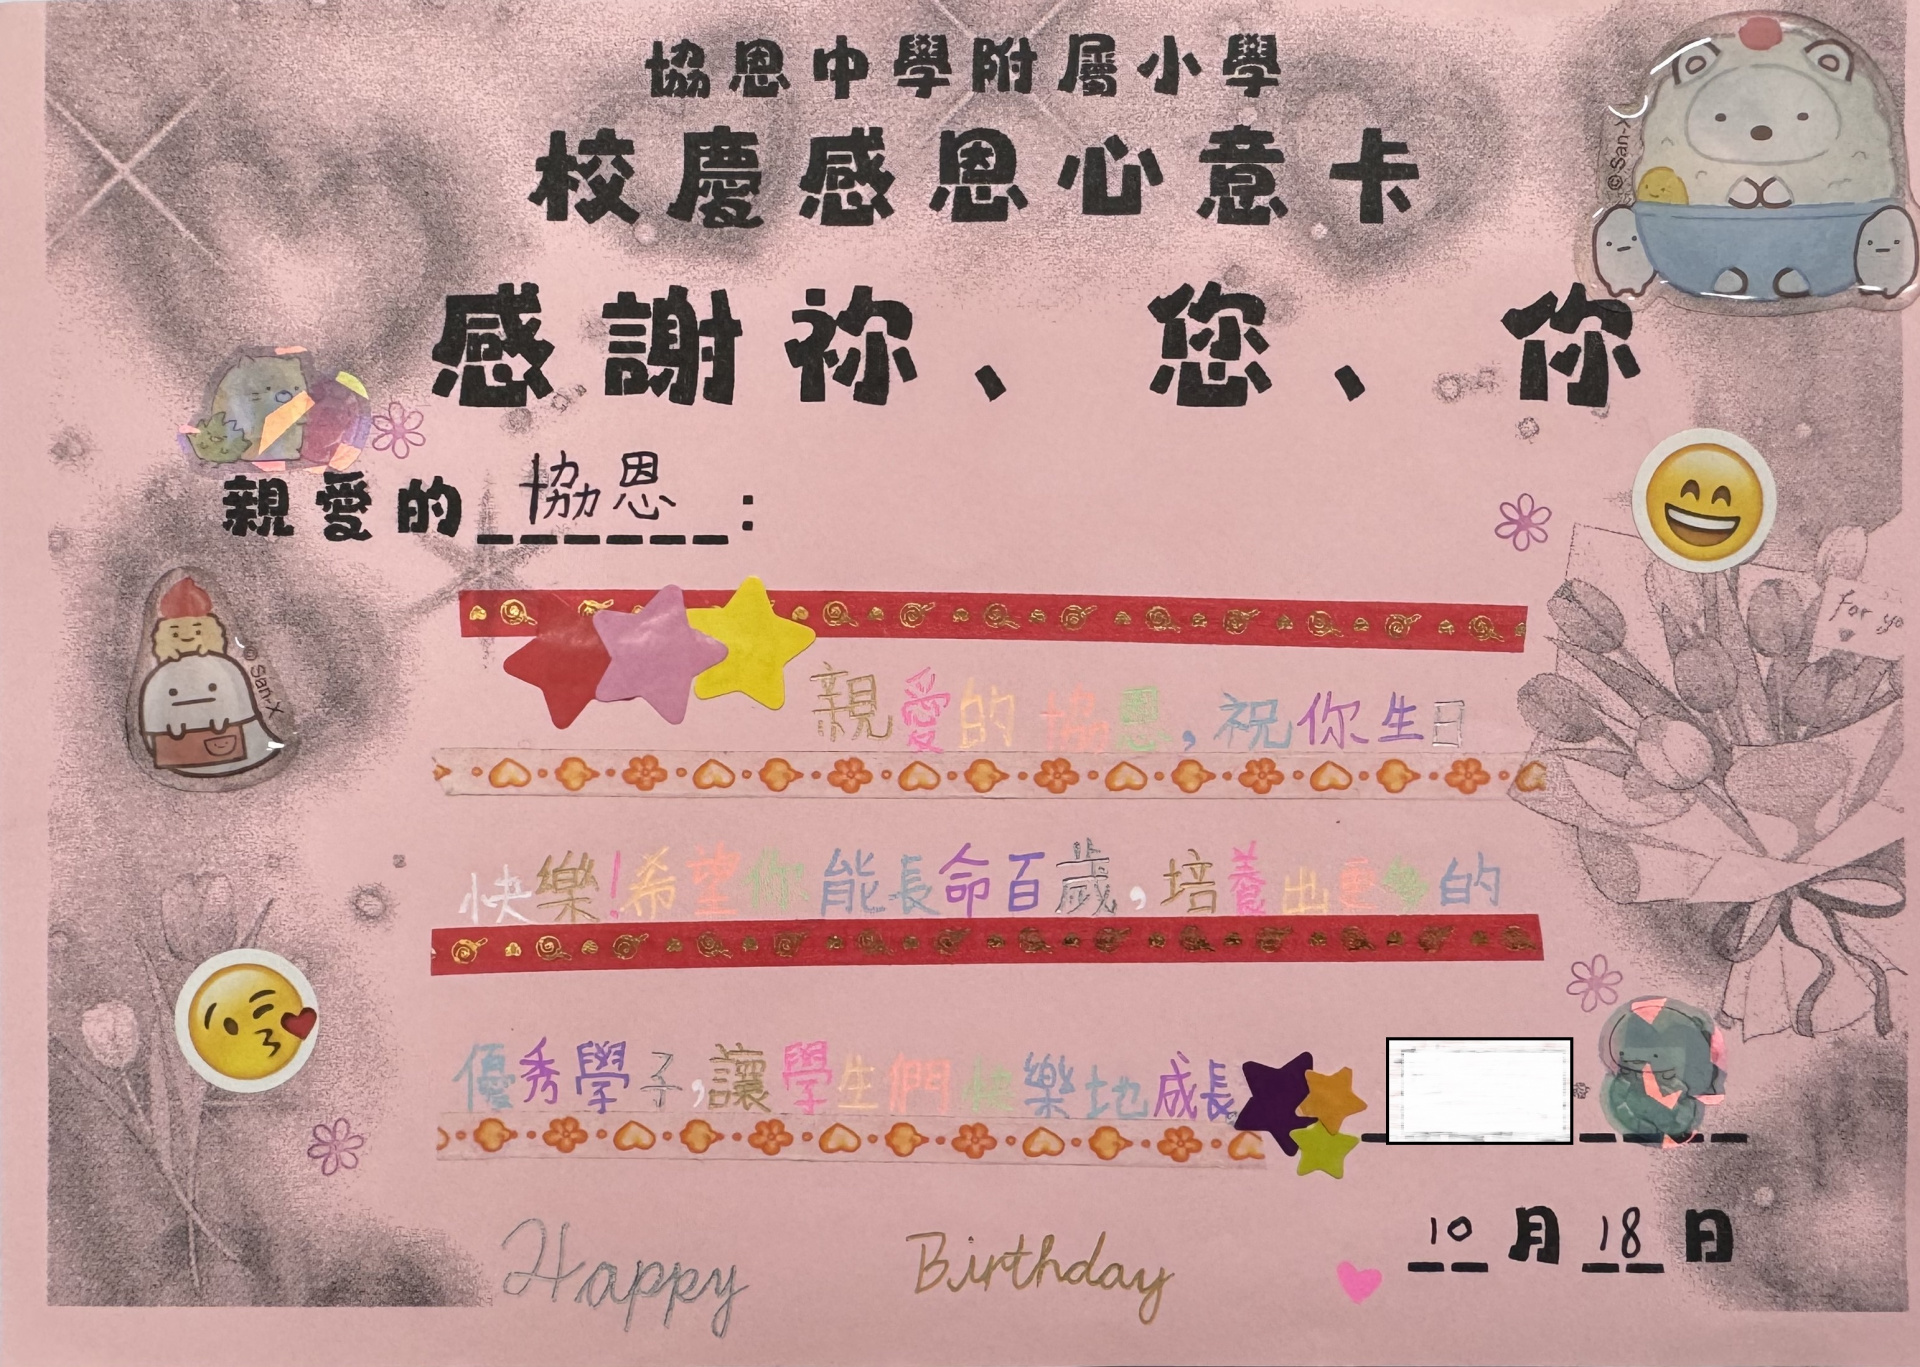 協恩中學附屬小學
校慶感恩心意卡
感謝祢、您、你
親愛的 協恩 :
親愛的協恩,祝你生日
快樂!希望你能長命百歲,培養出更多的
優秀學子,讓學生們快樂地成長
10月18日
Happy Birthday
for yo
© San-X
© San-X